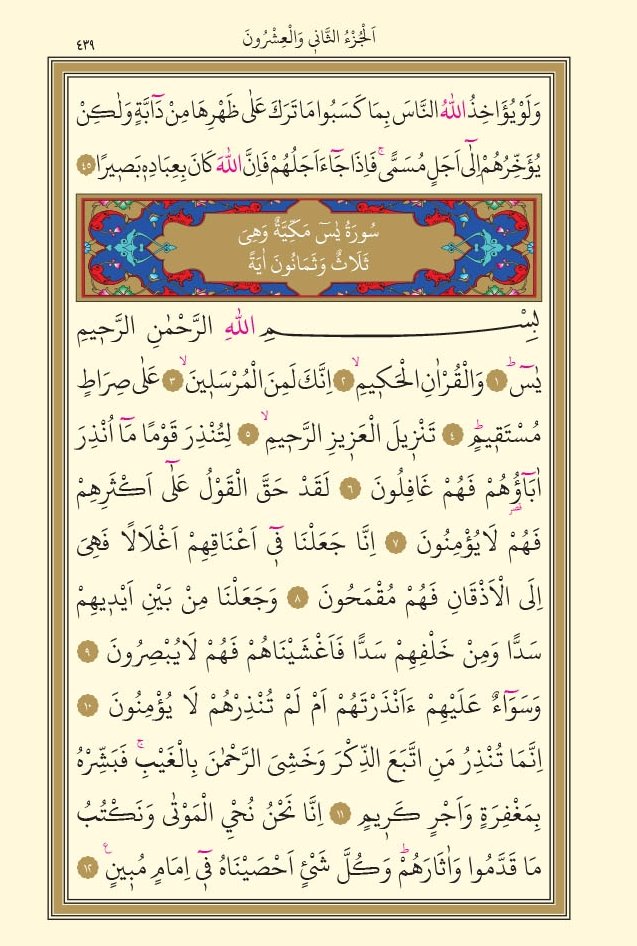 اَلْجُزْءُ الثَّانِي وَالْعِشْرُونَ
٤٣٩
وَلَوْ يُؤَاخِذُ اللّٰهُ النَّاسَ بِمَا كَسَبُوا مَا تَرَكَ عَلٰى ظَهْرِهَا مِنْ دَٓابَّةٍ وَلٰكِنْ
يُؤَخِّرُهُمْ اِلٰٓى اَجَلٍ مُسَمًّىۚ فَاِذَا جَٓاءَ اَجَلُهُمْ فَاِنَّ اللّٰهَ كَانَ بِعِبَادِهٖ بَصٖيرًا ﴿٤٥﴾
سُورَةُ يٰسٓ مَكِّيَّةٌ وَهِيَ
ثَلَاثٌ وَثَمَانُونَ اٰيَةً
بِسْمِ اللّٰهِ الرَّحْمٰنِ الرَّحٖيمِ
يٰسٓۜ ﴿١﴾ وَالْقُرْاٰنِ الْحَكٖيمِۙ ﴿٢﴾ اِنَّكَ لَمِنَ الْمُرْسَلٖينَۙ ﴿٣﴾ عَلٰى صِرَاطٍ
مُسْتَقٖيمٍۜ ﴿٤﴾ تَنْزٖيلَ الْعَزٖيزِ الرَّحٖيمِۙ ﴿٥﴾ لِتُنْذِرَ قَوْمًا مَٓا اُنْذِرَ
اٰبَٓاؤُ۬هُمْ فَهُمْ غَافِلُونَ ﴿٦﴾ لَقَدْ حَقَّ الْقَوْلُ عَلٰٓى اَكْثَرِهِمْ
فَهُمْ لَا يُؤْمِنُونَ ﴿٧﴾ اِنَّا جَعَلْنَا فٖٓي اَعْنَاقِهِمْ اَغْلَالًا فَهِيَ
اِلَى الْاَذْقَانِ فَهُمْ مُقْمَحُونَ ﴿٨﴾ وَجَعَلْنَا مِنْ بَيْنِ اَيْدٖيهِمْ
سَدًّا وَمِنْ خَلْفِهِمْ سَدًّا فَاَغْشَيْنَاهُمْ فَهُمْ لَا يُبْصِرُونَ ﴿٩﴾
وَسَوَٓاءٌ عَلَيْهِمْ ءَاَنْذَرْتَهُمْ اَمْ لَمْ تُنْذِرْهُمْ لَا يُؤْمِنُونَ ﴿١٠﴾
اِنَّمَا تُنْذِرُ مَنِ اتَّبَعَ الذِّكْرَ وَخَشِيَ الرَّحْمٰنَ بِالْغَيْبِۚ فَبَشِّرْهُ
بِمَغْفِرَةٍ وَاَجْرٍ كَرٖيمٍ ﴿١١﴾ اِنَّا نَحْنُ نُحْيِ الْمَوْتٰى وَنَكْتُبُ
مَا قَدَّمُوا وَاٰثَارَهُمْۜ وَكُلَّ شَيْءٍ اَحْصَيْنَاهُ فٖٓي اِمَامٍ مُبٖينٍ ﴿١٢﴾